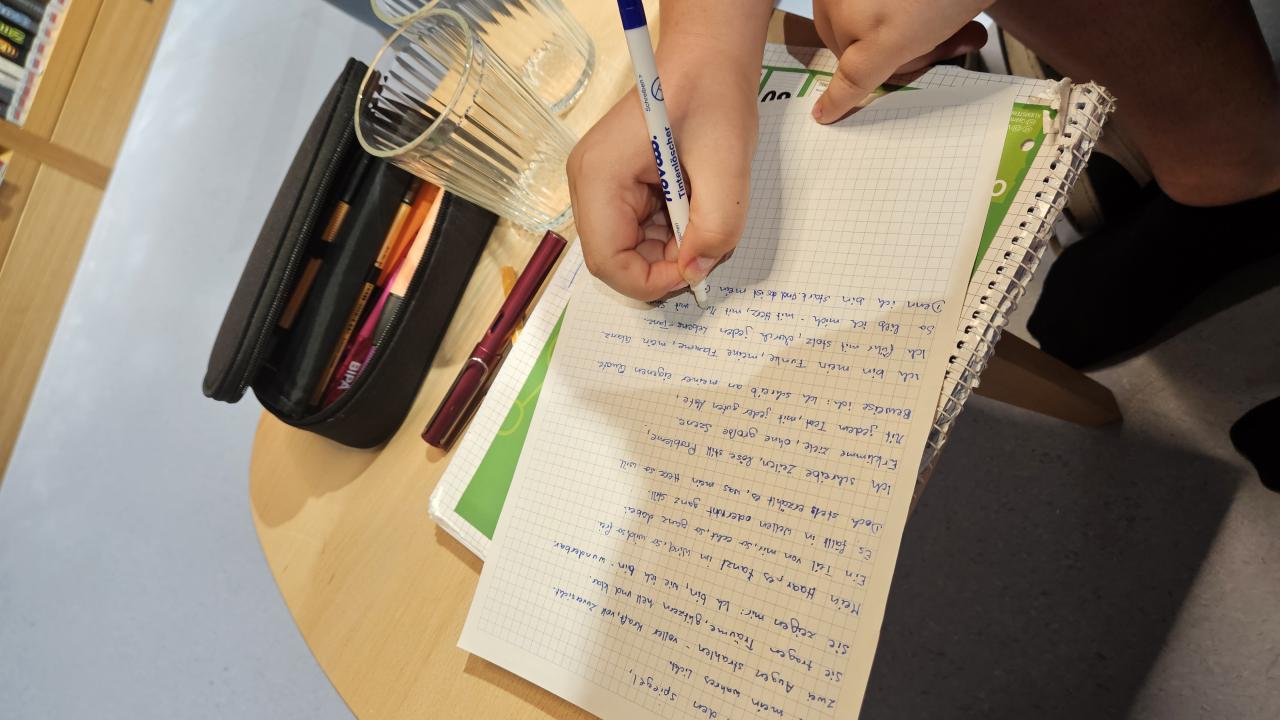 den Spiegel,
mein wahres Licht.
zwei Augen strahlen - voller Kraft, voll Zuversicht.
Sie tragen Träume, glitzern hell und klar.
Sie zeigen mir: Ich bin, wie ich bin - wunderbar.
Mein Haar, es tanzt im Wind, so wild, so frei
Ein Teil von mir, so echt, so ganz dabei
Es fällt in Wellen oder ganz still.
Doch stets erzählt es, was mein Herz so will
Ich schreibe Zeilen, löse still Probleme,
Erklimme Ziele, ohne große Szene.
Mit jedem Test, mit jeder guten Note,
Beweise ich: Ich schreib an meiner eigenen Quote.
Ich bin mein Funke, meine Flamme, mein Glanz.
Ich führ mit Stolz, durch jeden Lebens-Tanz.
So lieb ich mich - mit Herz, mit
Denn ich bin stark. Und das ist mein
Tintenlöscher
BIPA